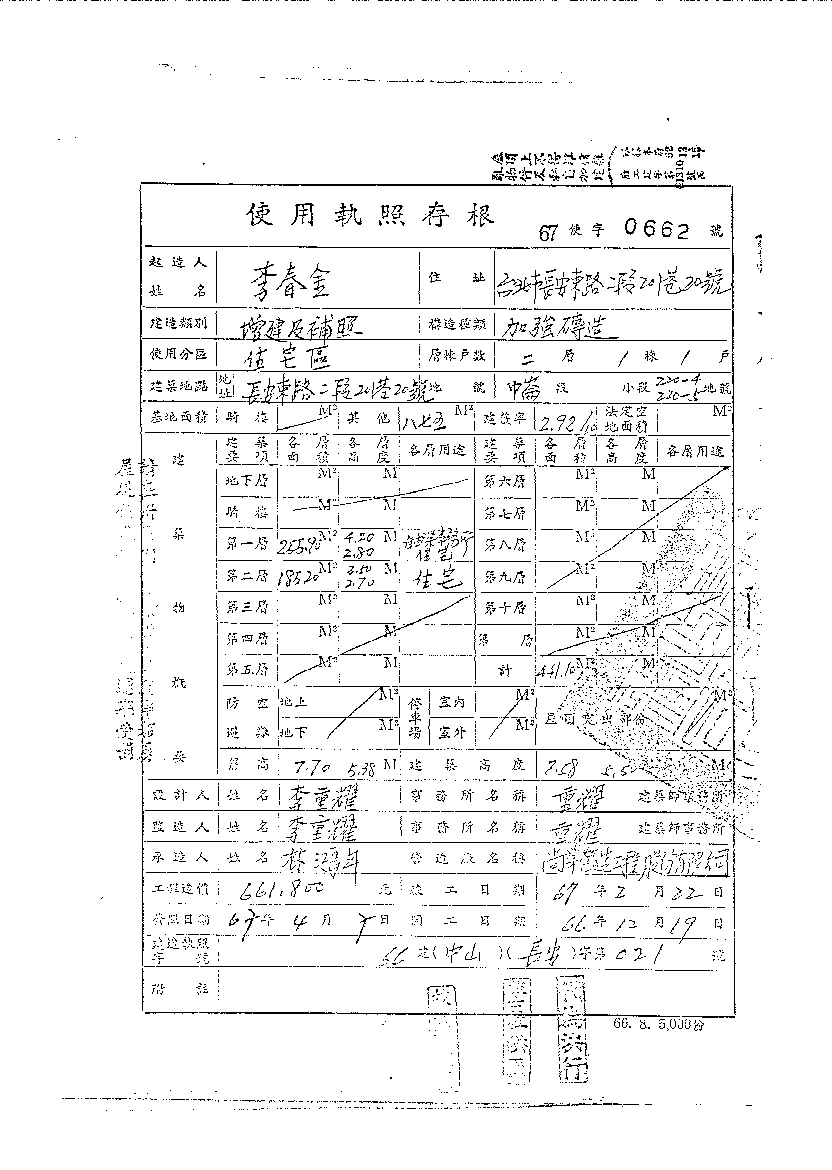 使用執照存根
67 使字 0662 號
起造人姓名 李春金 住址 台北市長安東路二段201巷20號
建造類別 增建及補照 構造種類 加強磚造
使用分區 住宅區 層棟戶數 二層 1棟 1戶
建築地點 地址 長安東路二段201巷20號 地號 中崙段 小段 220-4 220-5 地號
基地面積 騎樓 M² 其他 八七五 M² 建蔽率 2.92/10 法定空地面積 M²
建築物概要 建築要項 各層面積 各層高度 各層用途 建築要項 各層面積 各層高度 各層用途
地下層 M² M 第六層 M² M
騎樓 M² M 第七層 M² M
第一層 255.90 M² 4.20 2.80 M 住宅 第八層 M² M
第二層 185.20 M² 3.50 2.70 M 住宅 第九層 M² M
第三層 M² M 第十層 M² M
第四層 M² M 第 層 M² M
第五層 M² M 計 441.10 M² M
防空避難 地上 M² 停車場 室內 M²
地下 M² 室外 M²
簷高 7.70 5.38 M 建築高度 7.58 M
設計人 姓名 李重耀 事務所名稱 重耀 建築師事務所
監造人 姓名 李重耀 事務所名稱 重耀 建築師事務所
承造人 姓名 林鴻年 營造廠名稱
工程造價 661.800 元 竣工日期 67年2月22日
發照日期 67年4月7日 開工日期 66年12月19日
建造執照字號 66建(中山)(長安)字第021號
附註
66. 8. 5,000份